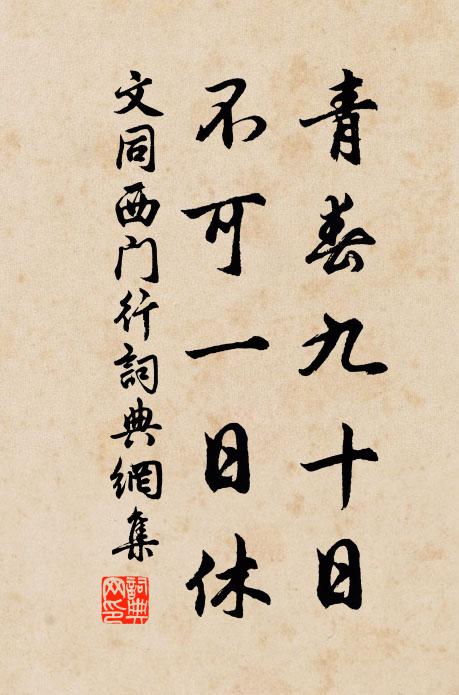 青春九十日
不可一日休
文同西门行詞典網集
詞典
网印